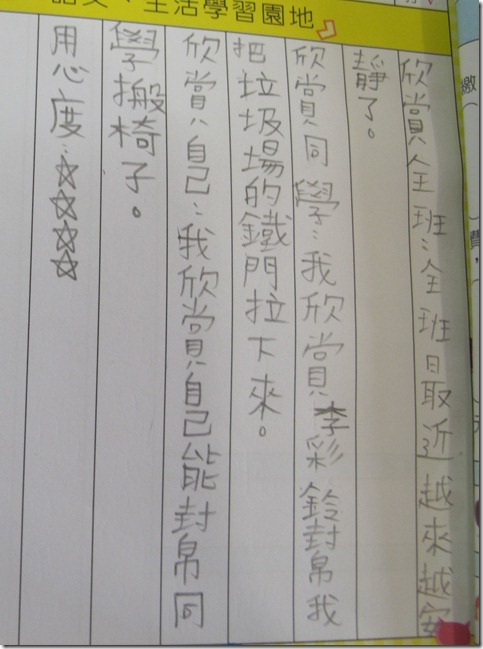 語文、生活學習園地
欣賞全班：全班最近越來越安
靜了。
欣賞同學：我欣賞李彩鈴幫我
把垃圾場的鐵門拉下來。
欣賞自己：我欣賞自己能幫同
學搬椅子。
用心度：☆☆☆☆
繳
費，